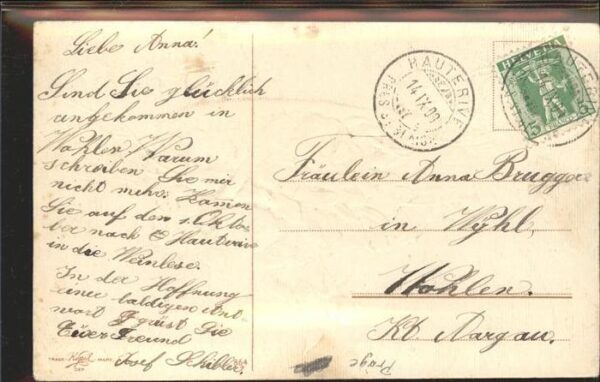 Liebe Anna!
Sind Sie glücklich
angekommen in
Wohlen. Warum
schreiben Sie mir
nicht mehr. Kamen
Sie auf den 1. Okto
ber nach Hauterive
in die Weinlese.
In der Hoffnung
einer baldigen Ant
wort grüst Sie
Euer Freund
Josef
HAUTERIVE
14.IX.09
HELVETIA
5
Fräulein Anna Brugger
in Wyhl.
Wohlen.
Kt. Aargau.